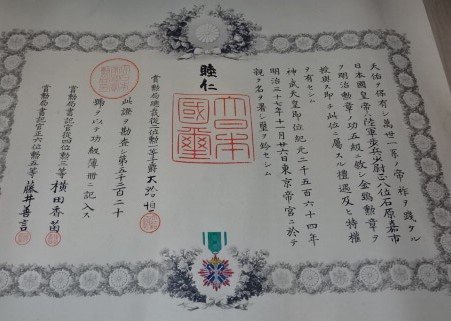 天佑ヲ保有シ萬世一系ノ帝祚ヲ踐タル
日本國皇帝ハ陸軍歩兵少尉正八位石原嘉市
ヲ明治勲章ノ功五級ニ敘シ金鵄勲章ヲ
授與ス即チ此位ニ屬スル禮遇及ヒ特權
ヲ有セシム
神武天皇即位紀元二千五百六十四年
明治三十七年十一月廿六日東京帝宮ニ於テ
親ラ名ヲ署シ璽ヲ鈐セシム
睦仁
大日本國璽
賞勲局總裁從二位勲一等子爵大給恒
此證ヲ勘査シ第五千二百二十
號ヲ以テ功級簿冊ニ記入ス
賞勲局書記官從四位勲三等 横田香苗
賞勲局書記官正四位勲五等 藤井善言